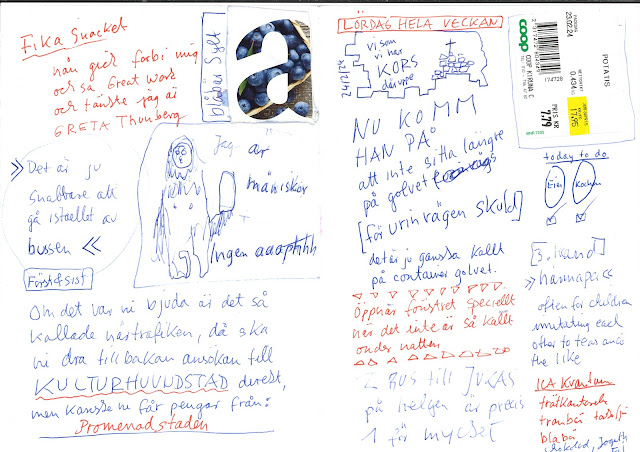 Fika Snacket
nån gick förbi mig
och sa Great Work
och tänkte jag är
GRETA Thunberg
blåbär Sylt
a
» Det är ju
snabbare att
gå istället av
bussen «
Först & sist
Jag är
människor
Ingen
Om det var ni bjuda är det så
kallade närtrafiken, då ska
ni dra tillbakan ansökan till
KULTURHUVUDSTAD direkt,
men kanske ni får pengar från:
Promenadstaden
LÖRDAG HELA VECKAN
vi som
vi har
KORS
där uppe
NU KOMM
HAN PÅ
att inte sitta längre
på golvet
[för urinvägen skuld]
det är ju ganska kallt
på container golvet.
Öppnar fönstret speciellt
när det inte är så kallt
under natten
2 BUS till JUKAS
på helgen är precis
1 för mycket
coop
COOP KIRUNA C
23.02.24
POTATIS
NETTOVIKT
0.434
174720
PRIS KR
7,79
17,95
today to do
Eier
Kochen
[3. Hand]
often for children
immitating each
other to tears and
the like
ICA Kvantum
blåbä